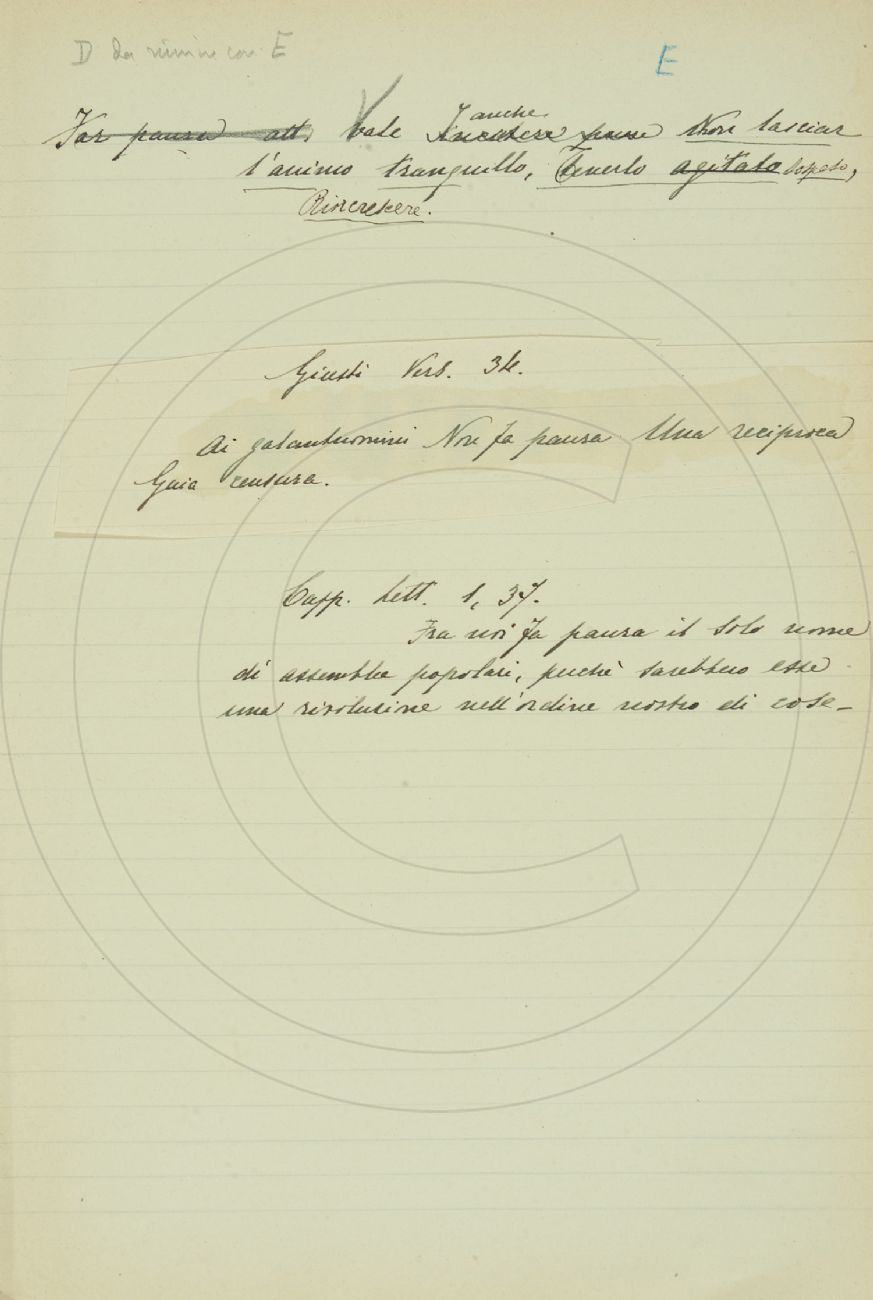 D da riunire con E
E
Far paura att. Vale Incutere pure anche Non lasciar
l'animo tranquillo, Tenerlo agitato sospeso,
Rincrescere.
Giusti Vers. 34.
Ai galantuomini Non fa paura Una reciproca
Gaia censura.
Capp. Lett. 1, 37.
Fra noi fa paura il solo nome
di assemblee popolari, perchè sarebbero esse
una rivoluzione nell'ordine nostro di cose_